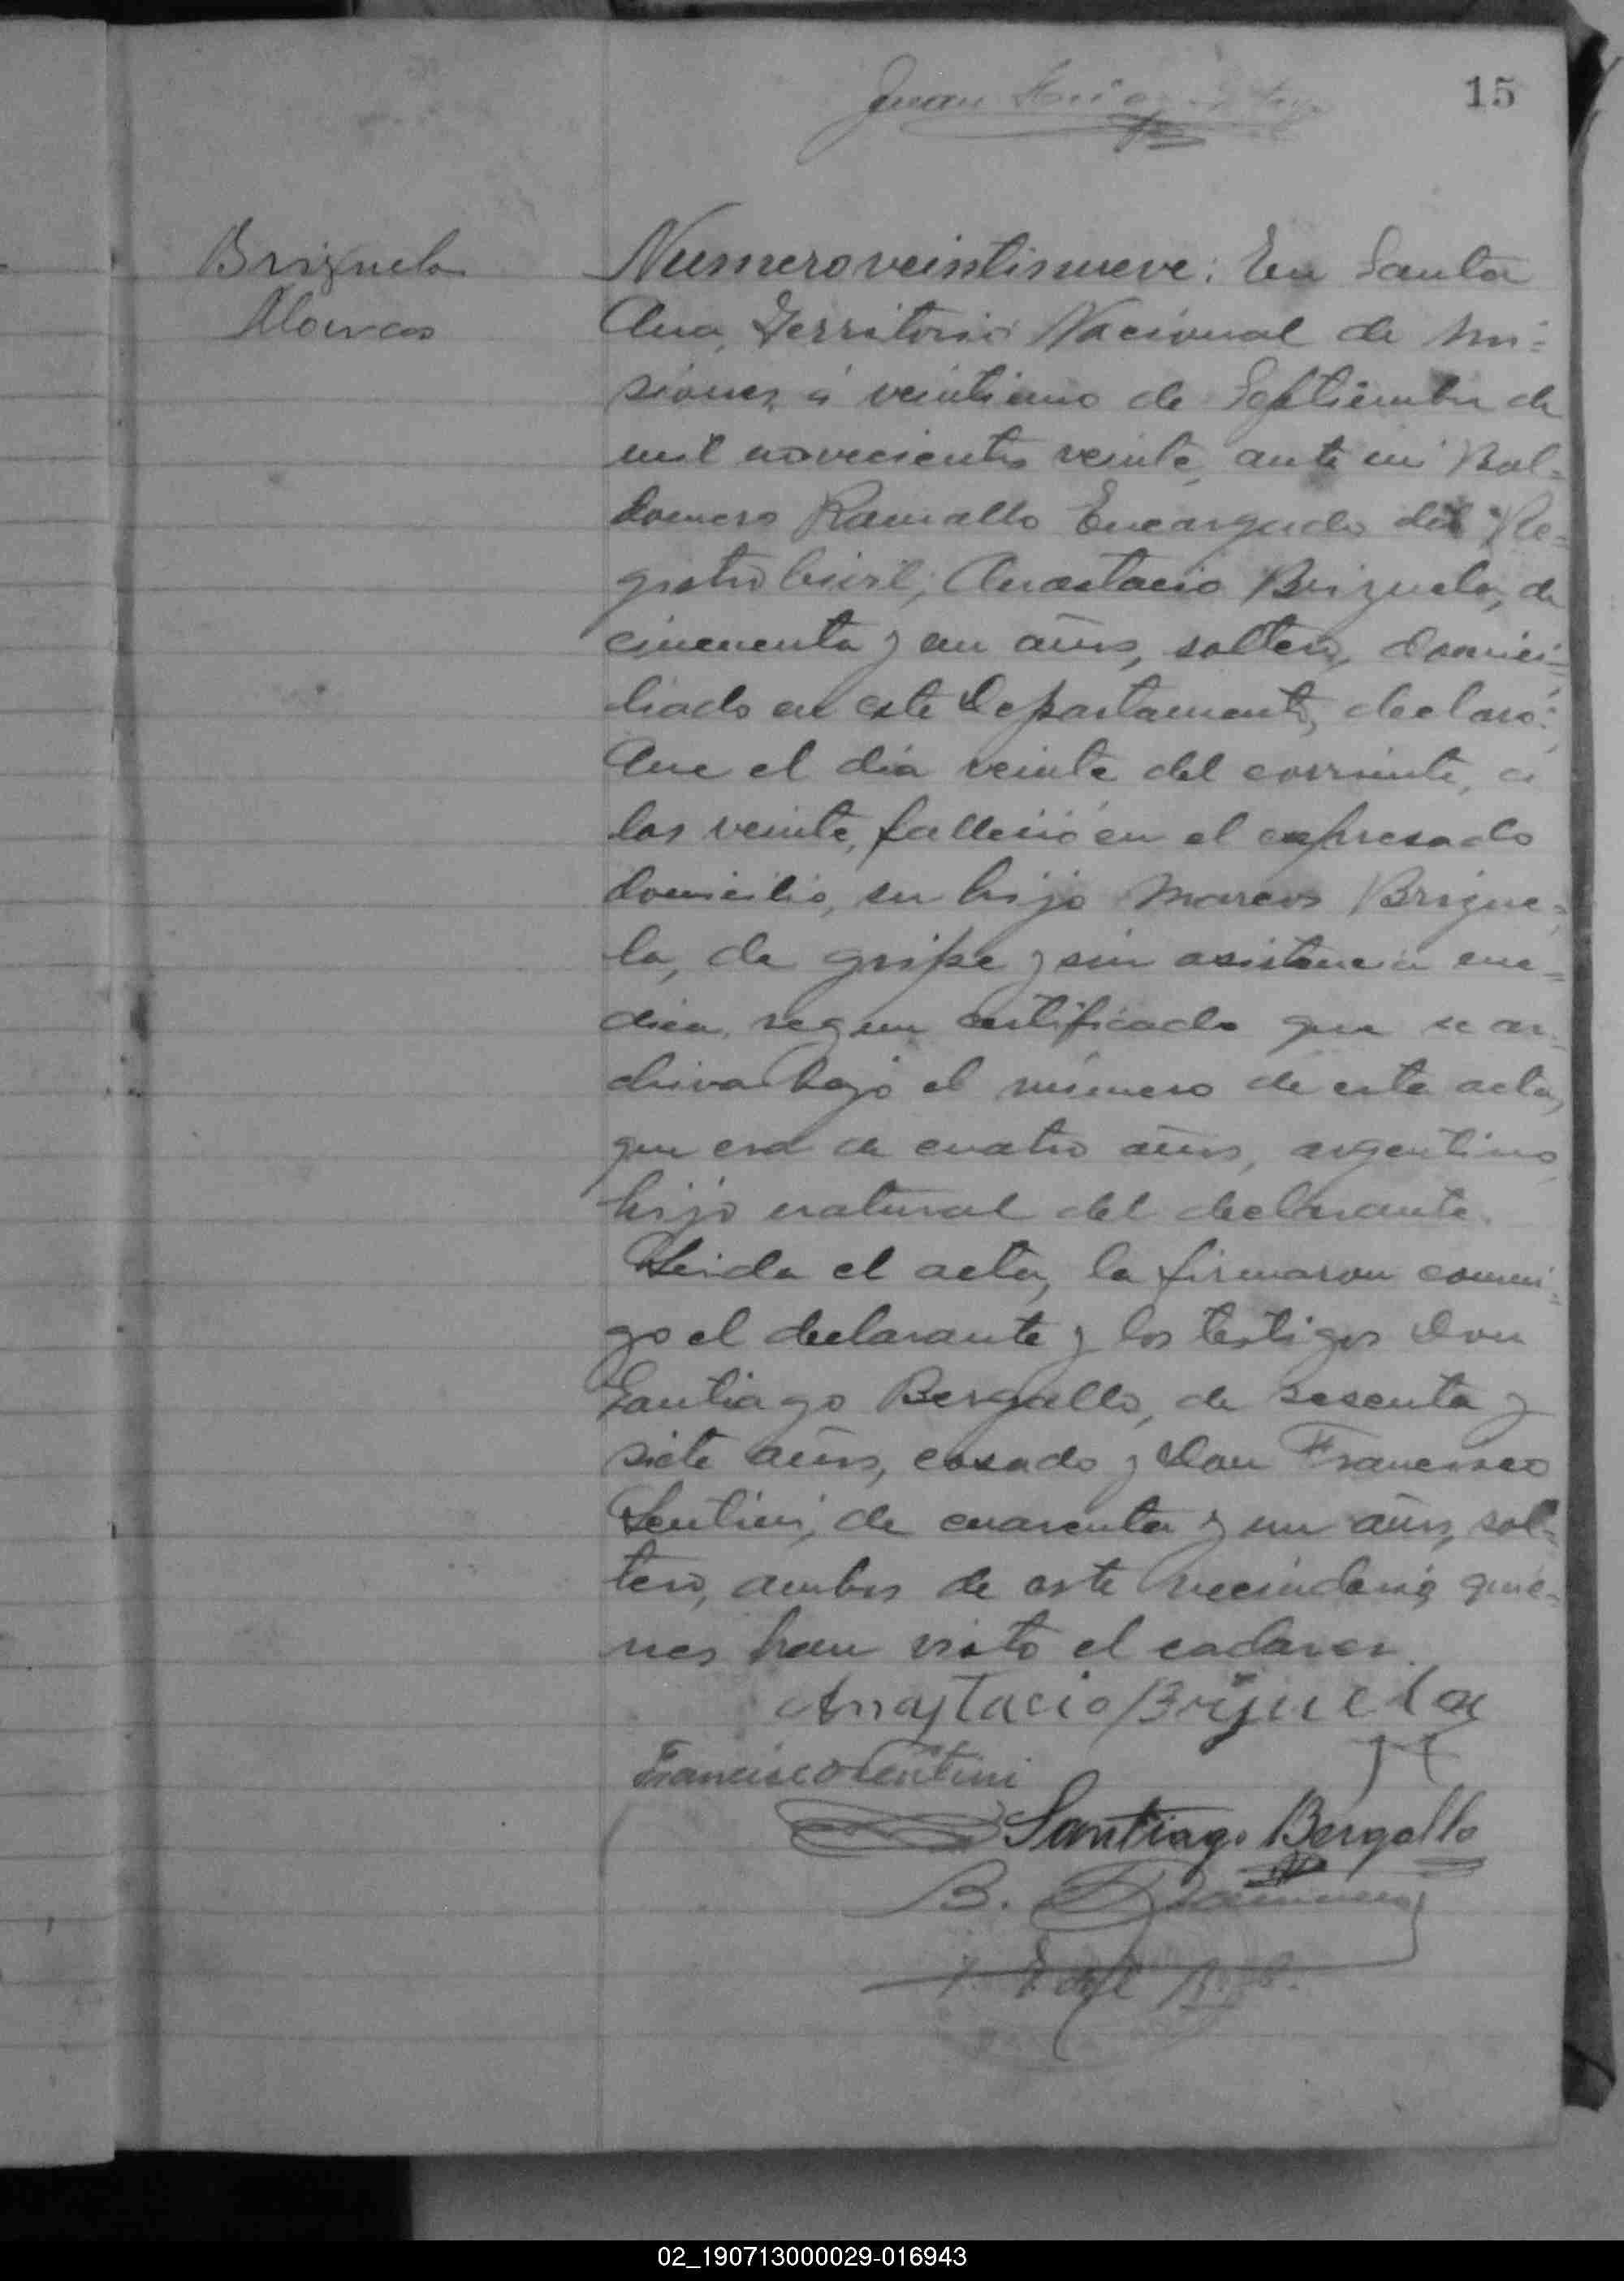 15
Juan
Brizuela
Marcos
Numero veintinueve: En Santa
Ana, Territorio Nacional de Mi=
siones, á veintiuno de Septiembre de
mil novecientos veinte, ante mi Bal=
domero Ramallo Encargado del Re=
gistro Civil; Anastacio Brizuela, de
cincuenta y un años, soltero, domici=
liado en este Departamento, declaró:
Que el dia veinte del corriente, a
las veinte, falleció en el expresado
domicilio, su hijo Marcos Brizue=
la, de gripe y sin asistencia me=
dica, segun certificado que se ar=
chiva bajo el número de esta acta,
que era de cuatro años, argentino,
hijo natural del declarante.
Leida el acta, la firmaron conmi=
go el declarante y los testigos Don
Santiago Bergallo, de sesenta y
siete años, casado y Don Francisco
Lentini, de cuarenta y un años, sol=
tero, ambos de este vecindario, quie=
nes han visto el cadaver.
Anastacio Brizuela
Francisco Lentini
Santiago Bergallo
B.
02_190713000029-016943